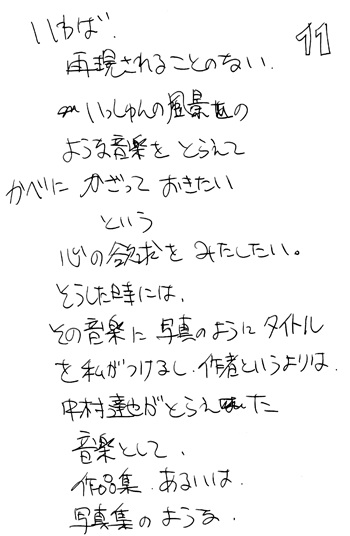 11
いわば.
再現されることのない.
いっしゅんの風景の
ような音楽を とらえて
かべに かざって おきたい
という
心の欲求を みたしたい。
そうした時には、
その音楽に 写真のように タイトル
を私がつけるし、作者というよりは、
中村達也がとらえた
音楽として、
作品集、あるいは、
写真集のような.